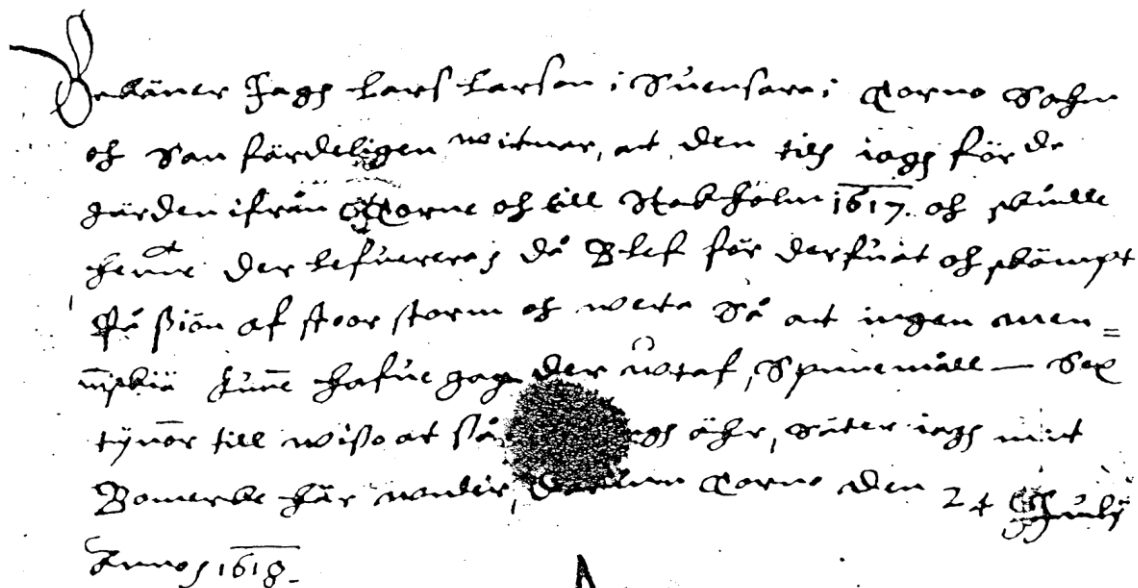 Bekäner Jagh Lars Larson i Suensare i Torno Sokn
oh San färdeligen witnar, at den tijdh iagh förde
gärden ifrån Torne oh till Stokholm 1617. oh skulle
henne der lefuereras då Blef för derfuat oh skämpt
På siön af stoor storm oh wäta Så at ingen men=
niskia kune hafue gagn der wtaf, Spanemåll — Sex
tynor till wisso at så iagh ähr, säter iagh mit
Bomerke här under, Datum Torno den 24 July
Anno 1618.